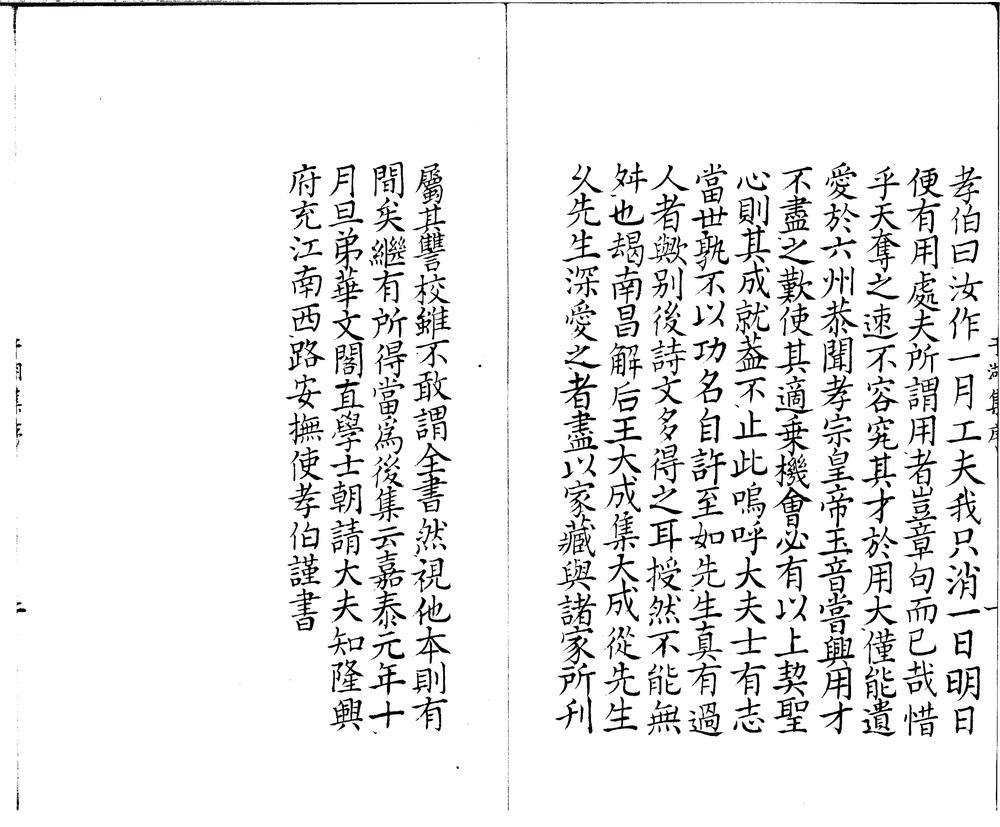 孝伯曰汝作一月工夫我只消一日明日
便有用處夫所謂用者豈章句而已哉惜
乎天奪之速不容究其才於用大僅能遺
愛於六州恭聞孝宗皇帝玉音嘗興用才
不盡之歎使其適乗機會必有以上契聖
心則其成就葢不止此嗚呼大夫士有志
當世孰不以功名自許至如先生真有過
人者歟别後詩文多得之耳授然不能無
舛也朅南昌解后王大成集大成從先生
乆先生深愛之者盡以家藏與諸家所刋
屬其讐校雖不敢謂全書然視他本則有
間矣繼有所得當爲後集云嘉泰元年十
月旦弟華文閣直學士朝請大夫知隆興
府充江南西路安撫使孝伯謹書